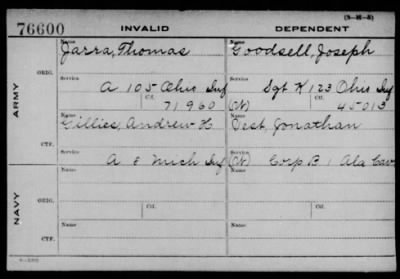 (3-H-5)
76600 INVALID DEPENDENT
Name Name
Jarra, Thomas Goodsell, Joseph
ORIG. Service Service
A 105 Ohio Inf Sgt K 123 Ohio Inf
Ctf. 71960 (N) Ctf. 45013
ARMY
Name Name
Gillies, Andrew H Jonathan
CTF. Service Service
A 8 Mich Inf (N) Corp B 1 Ala Cav
Name Name
ORIG. Service Ctf. Service Ctf.
NAVY
Name Name
CTF. Service Service